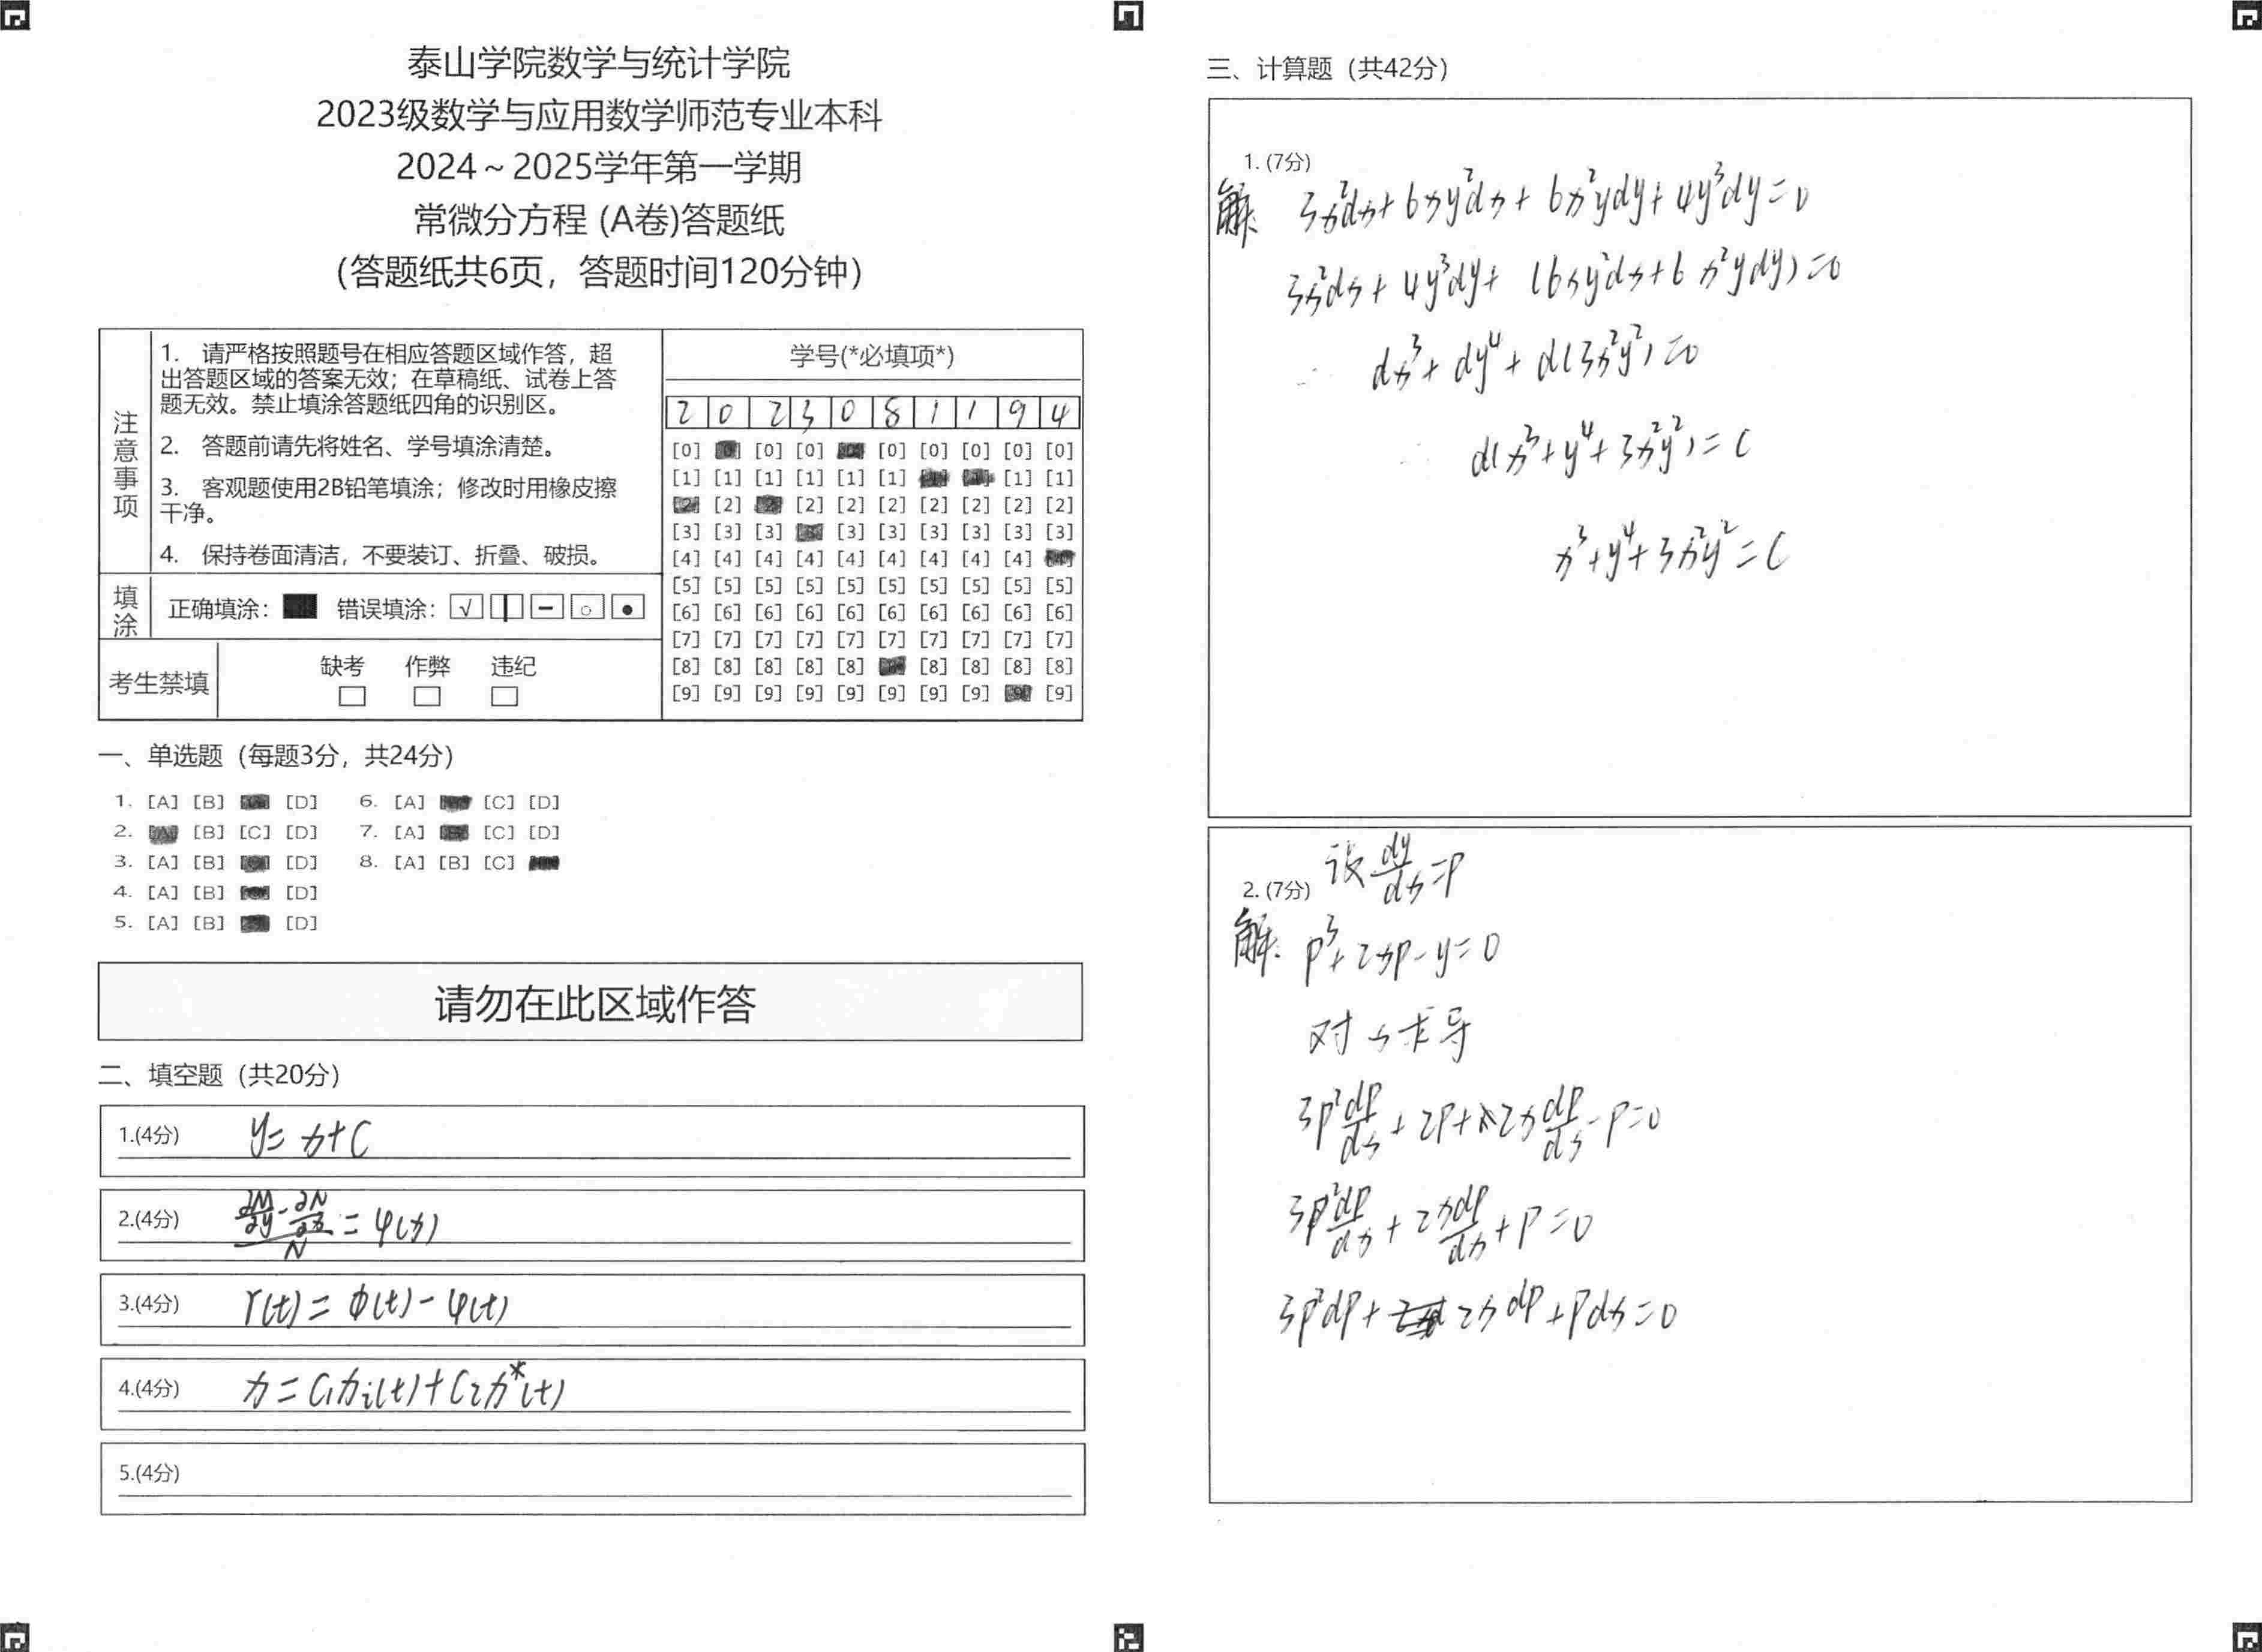 泰山学院数学与统计学院
2023级数学与应用数学师范专业本科
2024～2025学年第一学期
常微分方程 (A卷)答题纸
（答题纸共6页，答题时间120分钟）
注意事项
1. 请严格按照题号在相应答题区域作答，超
出答题区域的答案无效；在草稿纸、试卷上答
题无效。禁止填涂答题纸四角的识别区。
2. 答题前请先将姓名、学号填涂清楚。
3. 客观题使用2B铅笔填涂；修改时用橡皮擦
干净。
4. 保持卷面清洁，不要装订、折叠、破损。
填涂
正确填涂： 错误填涂：
考生禁填
缺考 作弊 违纪
学号(*必填项*)
2 0 2 3 0 8 1 1 9 4
[0] [0] [0] [0] [0] [0] [0] [0]
[1] [1] [1] [1] [1] [1] [1] [1]
[2] [2] [2] [2] [2] [2] [2] [2]
[3] [3] [3] [3] [3] [3] [3] [3] [3]
[4] [4] [4] [4] [4] [4] [4] [4] [4]
[5] [5] [5] [5] [5] [5] [5] [5] [5] [5]
[6] [6] [6] [6] [6] [6] [6] [6] [6] [6]
[7] [7] [7] [7] [7] [7] [7] [7] [7] [7]
[8] [8] [8] [8] [8] [8] [8] [8] [8]
[9] [9] [9] [9] [9] [9] [9] [9] [9]
一、单选题（每题3分，共24分）
1. [A] [B] [D] 6. [A] [C] [D]
2. [B] [C] [D] 7. [A] [C] [D]
3. [A] [B] [D] 8. [A] [B] [C]
4. [A] [B] [D]
5. [A] [B] [D]
请勿在此区域作答
二、填空题（共20分）
1.(4分) y= x+C
2.(4分) (∂M/∂y-∂N/∂x)/N = φ(x)
3.(4分) r(t) = ϕ(t) - ψ(t)
4.(4分) x = C₁xᵢ(t)+C₂x*(t)
5.(4分)
三、计算题（共42分）
1. (7分)
解: 3x²dx+6xy²dx+6x²ydy+4y³dy=0
3x²dx+4y³dy+(6xy²dx+6x²ydy)=0
dx³+dy⁴+d(3x²y²)=0
d(x³+y⁴+3x²y²)=C
x³+y⁴+3x²y²=C
2. (7分) 设 dy/dx=P
解: P³+2xP-y=0
对x求导
3P²dP/dx+2P+2xdP/dx-P=0
3P²dP/dx+2xdP/dx+P=0
3P²dP+2xdP+Pdx=0